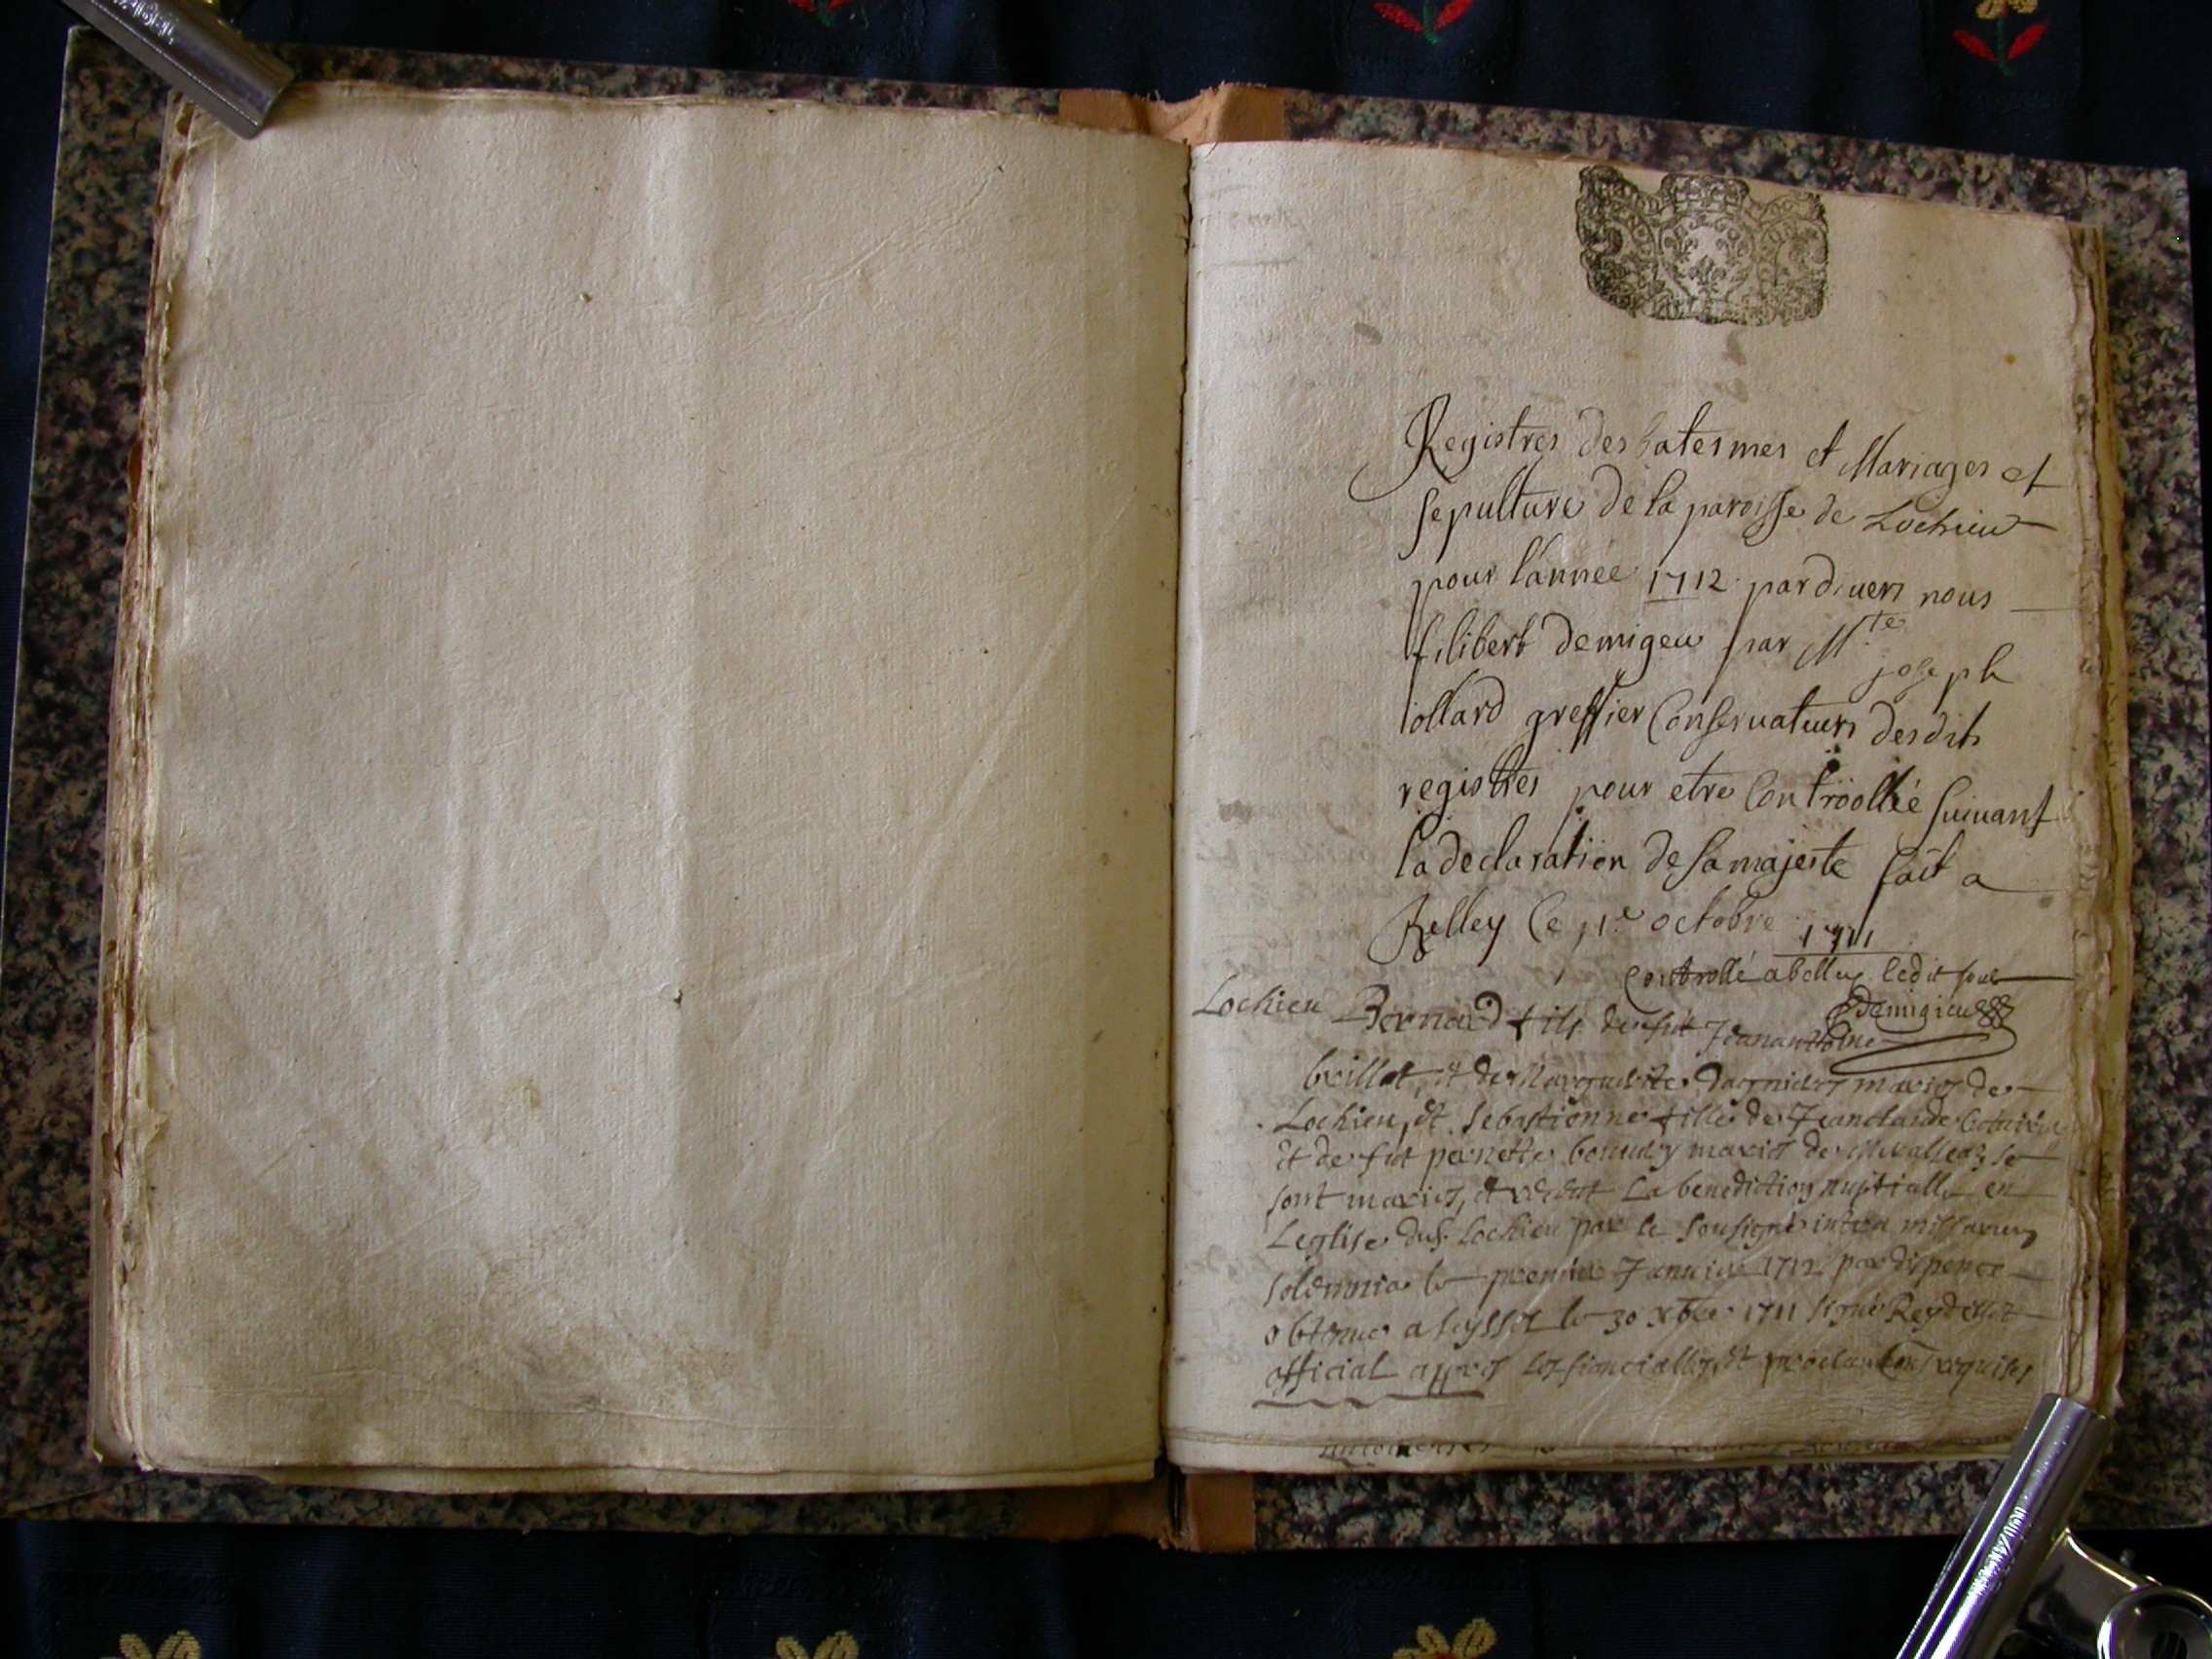 Registres des batesmes et Mariages et
sepulture de la paroisse de Lochieu
pour l'année 1712 par divers nous
filibert demigeu par Mte joseph
jollard greffier Conservateurs desdits
registres pour etre Controollée suivant
la declaration de sa majeste fait a
Belley le 1er octobre 1711
Controllé a belley ledit jour
Demigieu
Lochieu Bernard fils de fut Jeananthoine
brillat, et de Marguerite mariez de
Lochieu, et Sebastienne fille de Jeanclaude
et de fut pernette mariez de se
sont mariez, et la benediction nuptialle en
Leglise dud. Lochieu par le Sousigné intra missarum
solemnia le premier Janvier 1712 par dispence
obtenue a seyssel le 30 xbre 1711 signé Reydellet
official apprez les fiancialles, et proclamaons requises